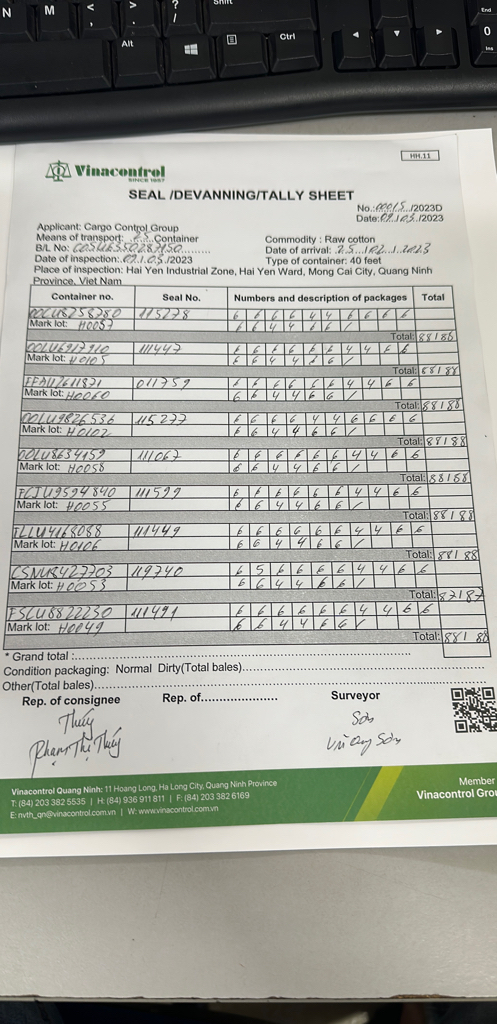 N
M
<
>
?
/
Shift
End
Alt
Ctrl
0
Ins
HH.11
Vinacontrol
SINCE 1957
SEAL /DEVANNING/TALLY SHEET
No.:00015./2023D
Date:02.1.05./2023
Applicant: Cargo Control Group
Means of transport: 25 Container
Commodity : Raw cotton
B/L No:
Date of arrival: 25...1.02..1.2023
Date of inspection:.02.1.05./2023
Type of container: 40 feet
Place of inspection: Hai Yen Industrial Zone, Hai Yen Ward, Mong Cai City, Quang Ninh
Province, Viet Nam
Container no. Seal No. Numbers and description of packages Total
OOLU8258280 115278 6 6 6 6 4 4 6 6 6 6
Mark lot: H0057 6 6 4 4 6 6 /
Total: 88188
OOLU6917910 111447 6 6 6 6 6 6 4 4 6 6
Mark lot: H0105 6 6 4 4 6 6 /
Total: 88188
011759 6 6 6 6 6 6 4 4 6 6
Mark lot: H0060 6 6 4 4 6 6 /
Total: 88188
OOLU9826536 115277 6 6 6 6 4 4 6 6 6 6
Mark lot: H0102 6 6 4 4 6 6 /
Total: 88188
OOLU8634159 111067 6 6 6 6 6 6 4 4 6 6
Mark lot: H0058 6 6 4 4 6 6 /
Total: 88188
FCIU9594840 111599 6 6 6 6 6 6 4 4 6 6
Mark lot: H0055 6 6 4 4 6 6 /
Total: 88188
TLLU4168088 111449 6 6 6 6 6 6 4 4 6 6
Mark lot: H0106 6 6 4 4 6 6 /
Total: 88188
CSNU8427703 119740 6 5 6 6 6 6 4 4 6 6
Mark lot: H0053 6 6 4 4 6 6 /
Total: 87187
FSCU8822230 111491 6 6 6 6 6 6 4 4 6 6
Mark lot: H0049 6 6 4 4 6 6 /
Total: 88188
* Grand total :
Condition packaging: Normal Dirty(Total bales)
Other(Total bales)
Rep. of consignee Rep. of Surveyor
Thúy
Phạm Thị Thúy
Sơn
Vũ Sơn
Vinacontrol Quang Ninh: 11 Hoang Long, Ha Long City, Quang Ninh Province
T: (84) 203 382 5535 | H: (84) 936 911 811 | F: (84) 203 382 6169
E: nvth_qn@vinacontrol.com.vn | W: www.vinacontrol.com.vn
Member
Vinacontrol Grou